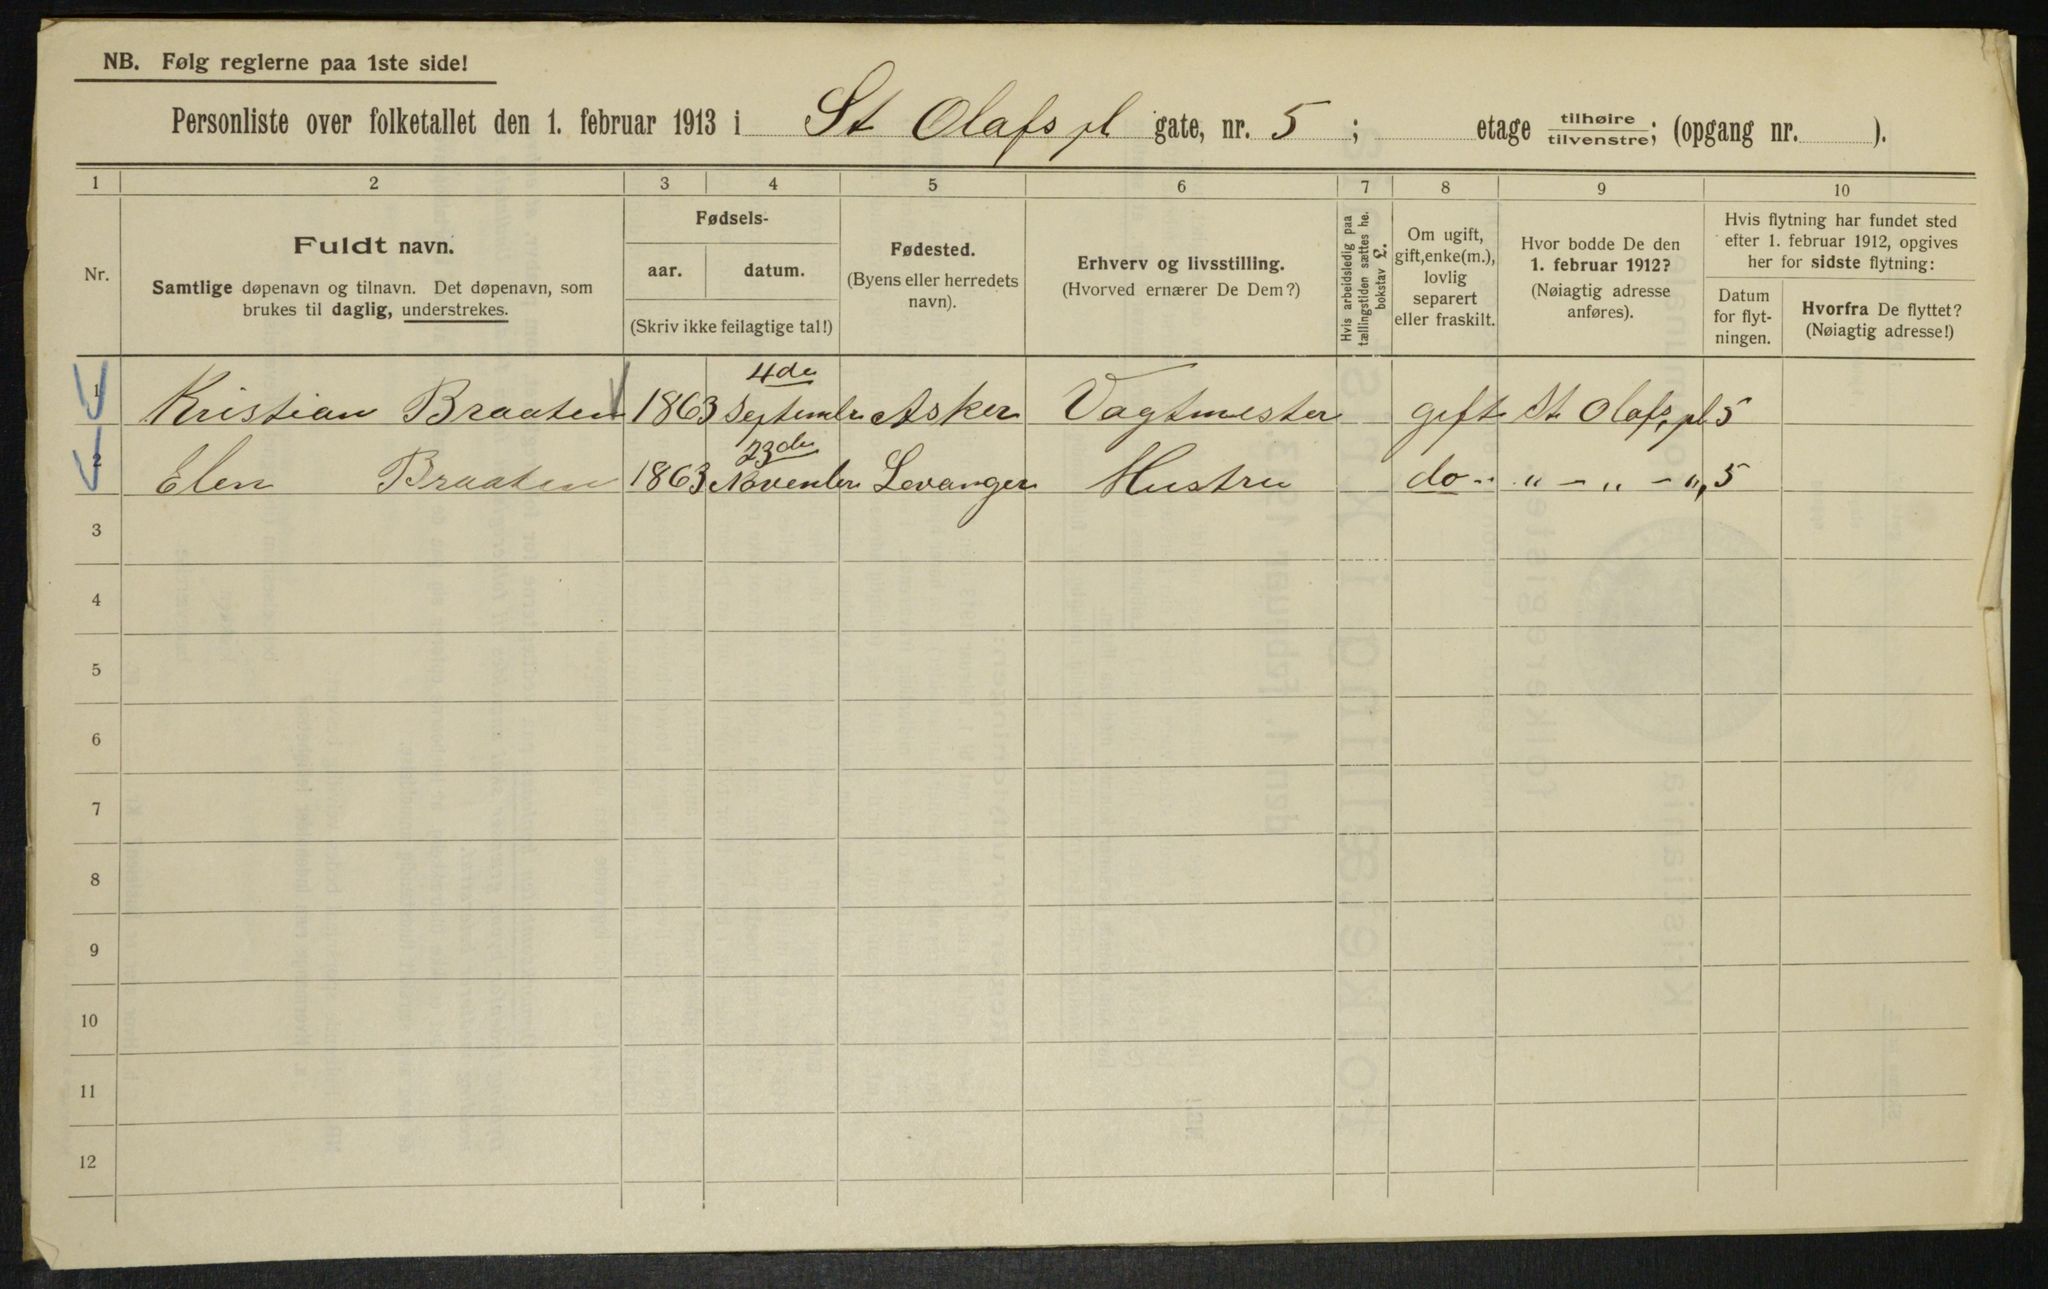 NB. Følg reglerne paa 1ste side!
Personliste over folketallet den 1. februar 1913 i St Olafs pl gate, nr. 5 ; etage tilhøire/tilvenstre; (opgang nr. ).
1 2 3 4 5 6 7 8 9 10
Nr.
Fuldt navn.
Samtlige døpenavn og tilnavn. Det døpenavn, som
brukes til daglig, understrekes.
Fødsels-
aar. datum.
(Skriv ikke feilagtige tal!)
Fødested.
(Byens eller herredets
navn).
Erhverv og livsstilling.
(Hvorved ernærer De Dem?)
Hvis arbeidsledig paa
tællingstiden sættes he.
bokstav £.
Om ugift,
gift, enke(m.),
lovlig
separert
eller fraskilt.
Hvor bodde De den
1. februar 1912?
(Nøiagtig adresse
anføres).
Hvis flytning har fundet sted
efter 1. februar 1912, opgives
her for sidste flytning:
Datum
for flyt-
ningen.
Hvorfra De flyttet?
(Nøiagtig adresse!)
4de
1 Kristian Braaten 1863 September Asker Vagtmester gift St Olafs, pl 5
23de
2 Elen Braaten 1863 November Levanger Hustru do " - " - ", 5
3
4
5
6
7
8
9
10
11
12